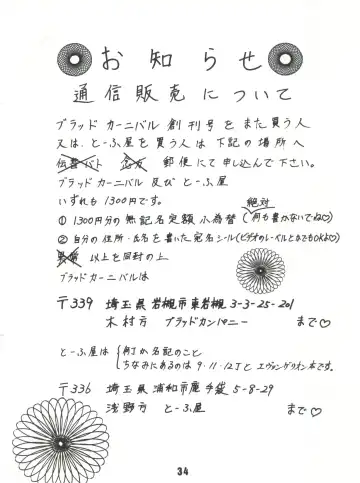 お知らせ
通信販売について
ブラッドカーニバル創刊号をまた買う人
又は、とーふ屋を買う人は下記の場所へ
郵便にて申し込んで下さい。
ブラッドカーニバル及びとーふ屋
いずれも1300円です。
絶対
① 1300円分の無記名定額小為替(何も書かないでね♡)
② 自分の住所・氏名を書いた宛名シール(ビデオのレーベルとかでもOKよ♡)
以上を同封の上
ブラッドカーニバルは
〒339 埼玉県岩槻市東岩槻3-3-25-201
木村方 ブラッドカンパニー まで♡
とーふ屋は 何丁か名記のこと
ちなみにあるのは9・11・12丁とエヴァンゲリオン本です。
〒336 埼玉県浦和市鹿手袋5-8-29
浅野方 とーふ屋 まで♡
34